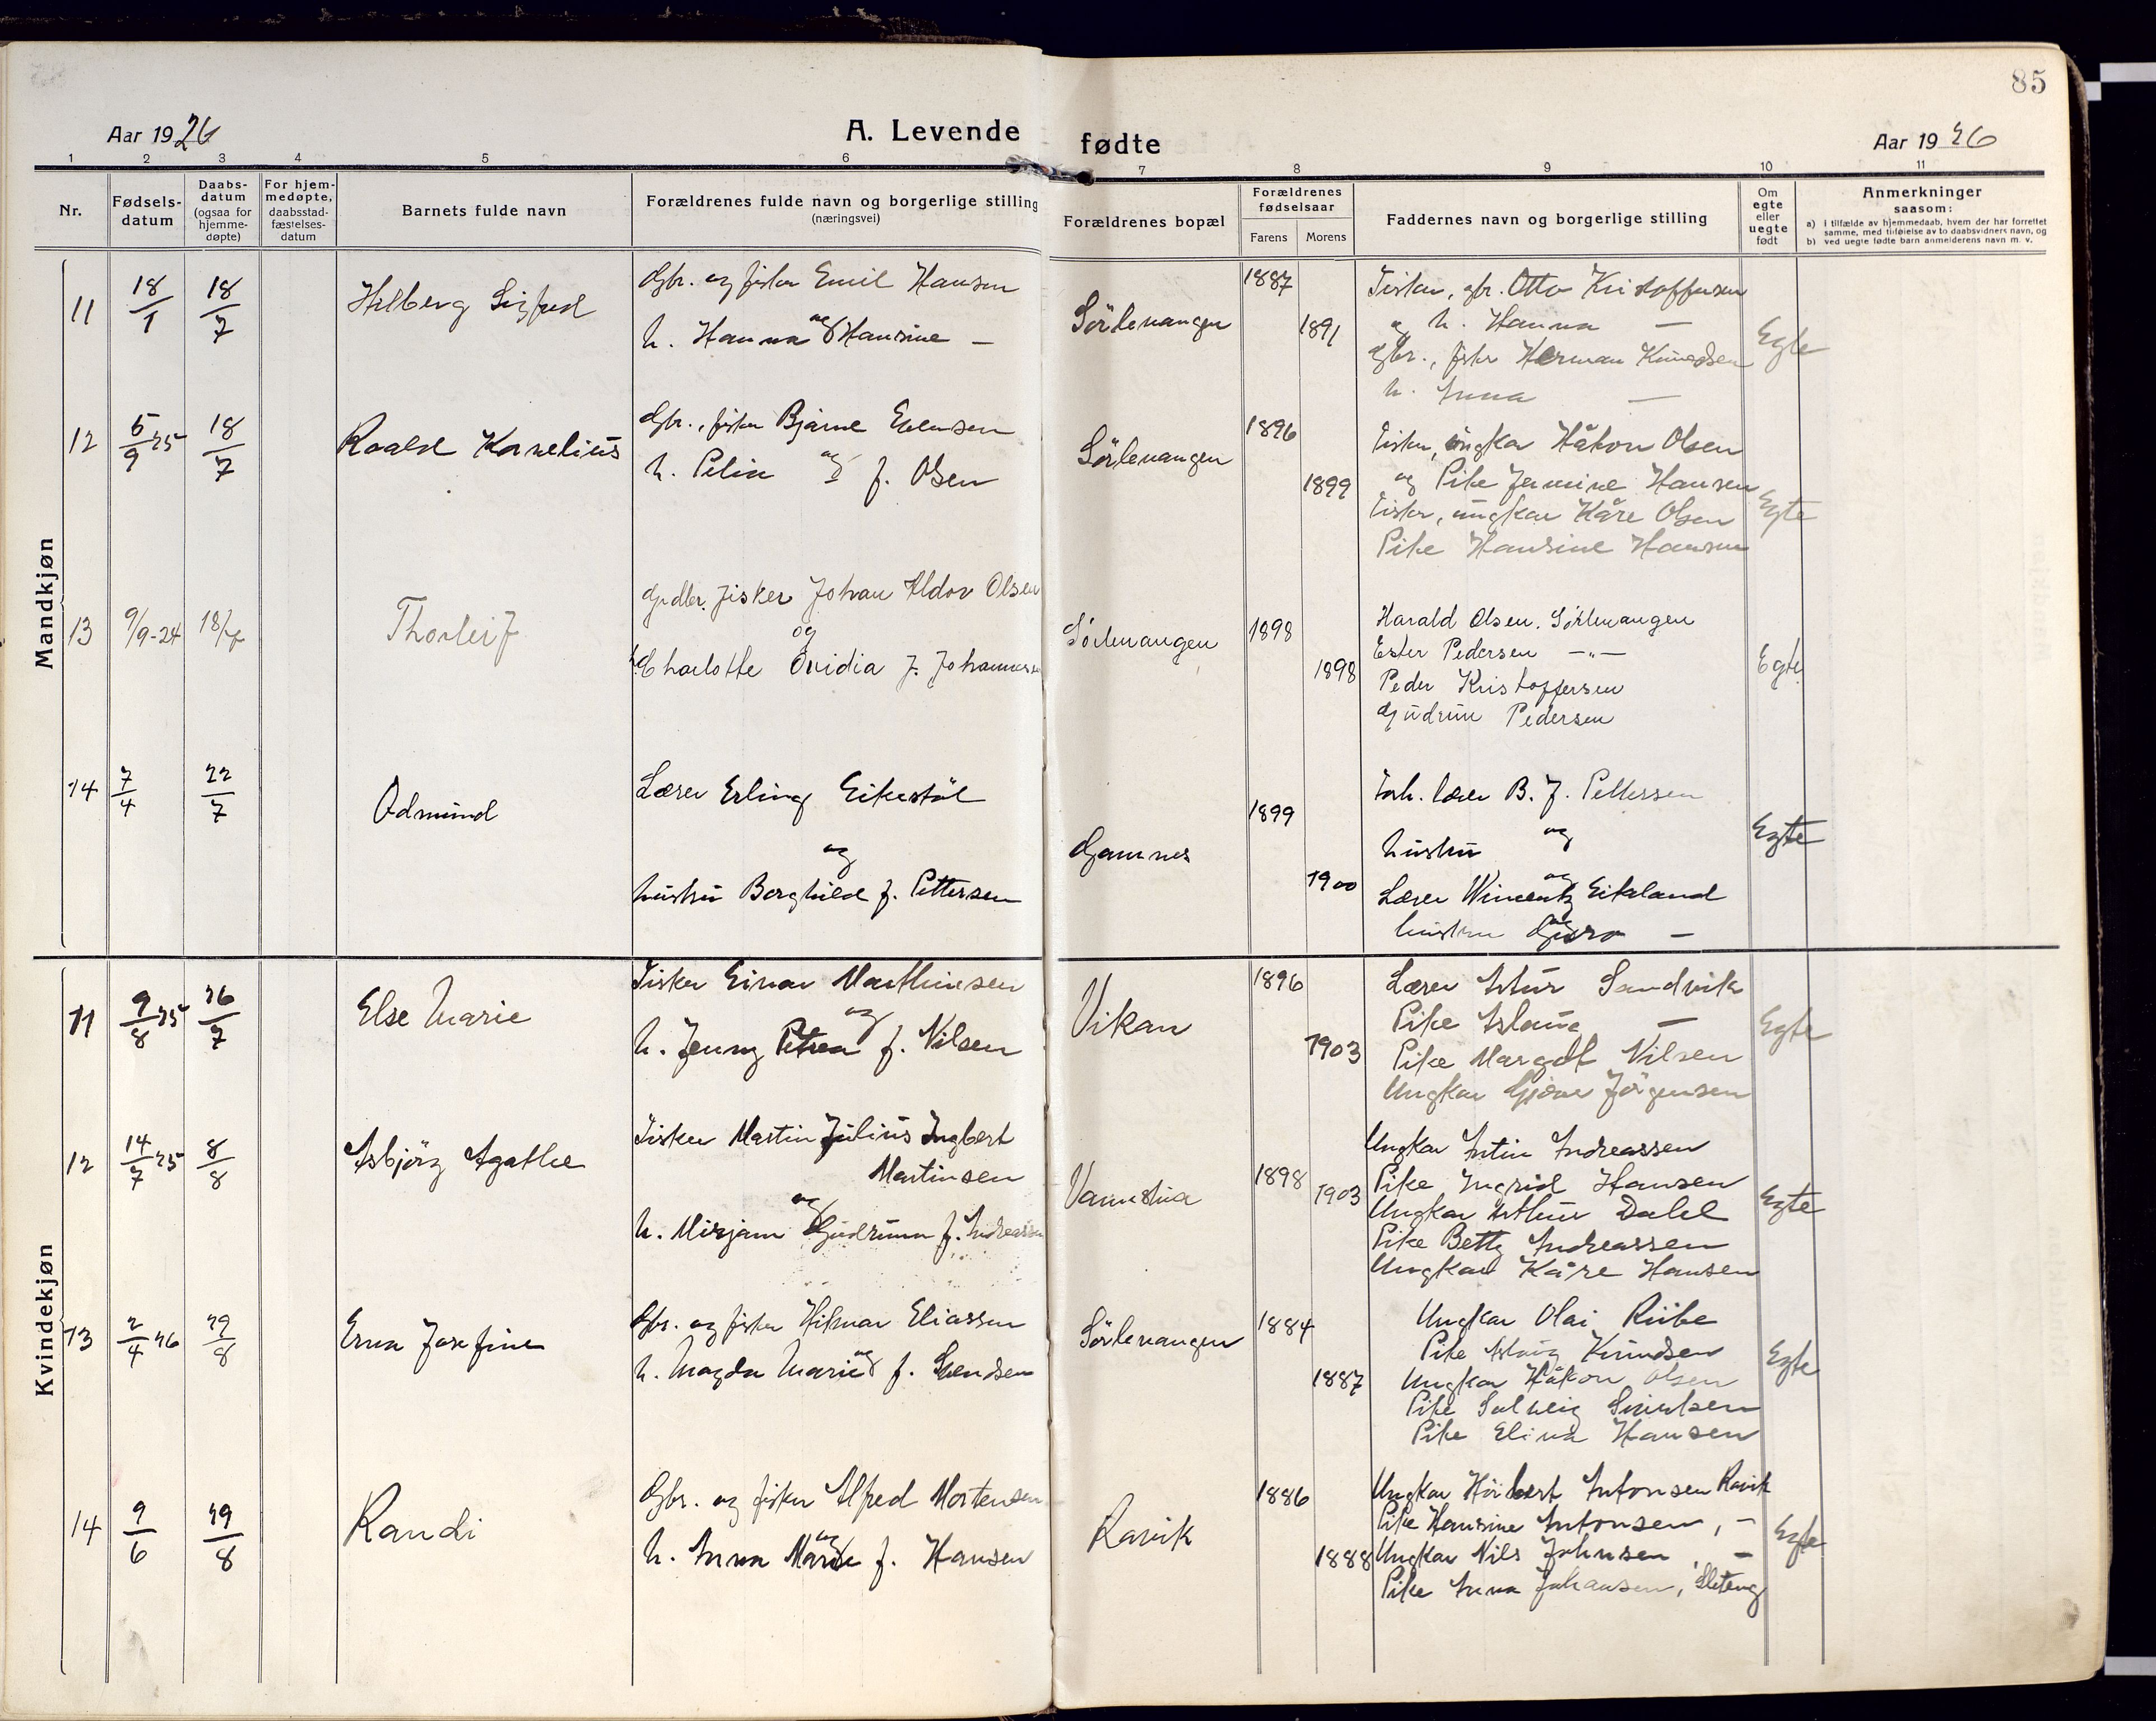 85
Aar 1926 A. Levende fødte Aar 1926
1 2 3 4 5 6 7 8 9 10 11
Nr.
Fødsels-
datum
Daabs-
datum
(ogsaa for
hjemme-
døpte)
For hjem-
medøpte,
daabsstad-
fæstelses-
datum
Barnets fulde navn
Forældrenes fulde navn og borgerlige stilling
(næringsvei)
Forældrenes bopæl
Forældrenes
fødselsaar
Farens Morens
Faddernes navn og borgerlige stilling
Om
egte
eller
uegte
født
Anmerkninger
saasom:
a) i tilfælde av hjemmedaab, hvem der har forrettet
samme, med tilføielse av to daabsvidners navn, og
b) ved uegte fødte barn anmelderens navn m. v.
Mandkjøn
11 18/1 18/7 Hilberg Sigfred
Gbr. og fisker Emil Hansen
og
h. Hanna Hansine —
Sörlenangen
1887
1891
Fisker, gbr. Otto Kristoffersen
og h. Hanna —
Gbr., fisker Herman Knudsen
h. Anna —
Egte
12 5/9 25 18/7 Roald Kornelius
Gbr., fisker Bjarne Evensen
og
h. Pelia f. Olsen
Sörlenangen
1896
1899
Fisker, ungkar Håkon Olsen
og Pike Jermine Hansen
Fisker, ungkar Kåre Olsen
Pike Hansine Hansen
Egte
13 9/9-24 18/7 Thorleif
Grdbr. fisker Johan Aldor Olsen
og
h. Charlotte Ovidia f. Johannessen
Sörlenangen
1898
1898
Harald Olsen, Sørlenangen
Ester Pedersen —"—
Peder Kristoffersen
Gudrun Pedersen
Egte
14 7/4 22/7 Odmund
Lærer Erling Eikestöl
og
hustru Borghild f. Pettersen
Gamnes
1899
1900
Forh. lærer B. J. Pettersen
og
hustru
og
Lærer Wincentz Eikeland
og
hustru Guro —
Egte
Kvindekjøn
11 9/8 25 26/7 Else Marie
Fisker Einar Marthinsen
og
h. Jenny Petrea f. Nilsen
Vikan
1896
1903
Lærer Artur Sandvik
Pike Aslaug —
Pike Margot Nilsen
Ungkar Gjöar Jörgensen
Egte
12 14/7 25 8/8 Asbjörg Agathe
Fisker Martin Julius Ingbert
Martinsen
og
h. Mirjam Gudrunn f. Andreassen
Vannstua
1898
1903
Ungkar Antin Andreassen
Pike Ingrid Hansen
Ungkar Arthur Dahl
Pike Betty Andreassen
Ungkar Kåre Hansen
Egte
13 2/4 26 29/8 Erna Josefine
Gbr. og fisker Hilmar Eliassen
og
h. Magda Marie f. Svendsen
Sörlenangen
1884
1887
Ungkar Olai Riibe
Pike Aslaug Knudsen
Ungkar Håkon Olsen
Pike Solveig Sivertsen
Pike Elina Hansen
Egte
14 9/6 29/8 Randi
Gbr. og fisker Alfred Mortensen
og
h. Anna Marie f. Hansen
Ravik
1886
1888
Ungkar Herbert Antonsen Ravik
Pike Hansine Antonsen, —
Ungkar Nils Johnsen, —
Pike Anna Johansen, Sleteng
Egte